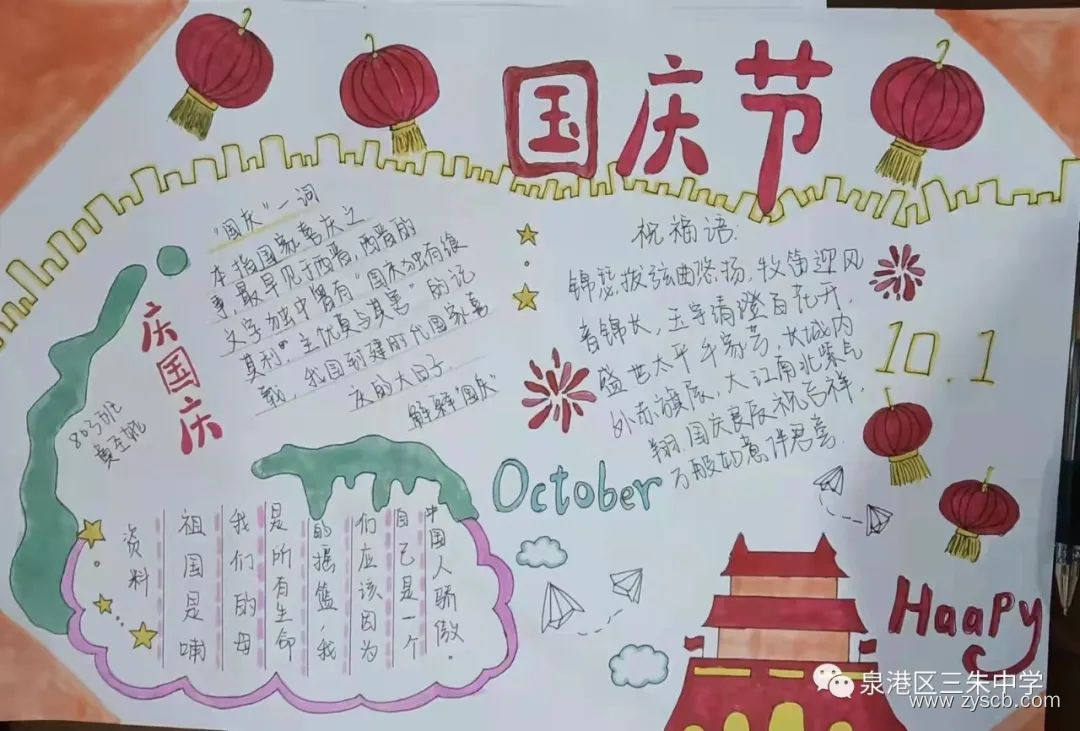 国庆节
"国庆"一词
本指国家喜庆之
事,最早见于西晋,西晋的
文字独中曾有"国庆独有飨
其利",主忧莫与其害"的记
载,我国封建时代国家喜
庆的大日子.
解释"国庆"
庆国庆
803班
祝福语:
锦瑟拨弦曲悠扬,牧笛迎风
音锦长,玉宇清澄百花开,
盛世太平乡家芳,长城内
外赤旗展,大江南北紫气
翔.国庆晨辰祝吉祥,
万般如意伴君喜.
10.1
October
资料
祖国是哺
我们的母
是所有生命
的摇篮,我
们应该因为
自己是一个
中国人骄傲。
Haapy
泉港区三朱中学
www.zyscb.com